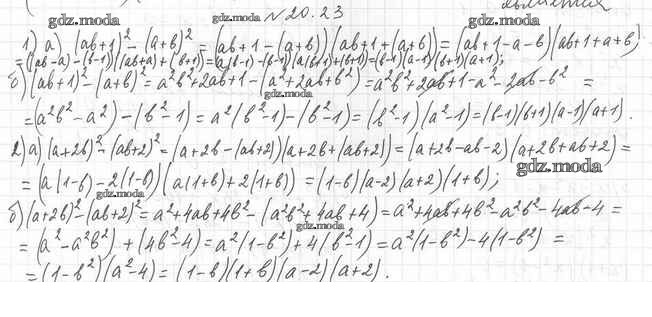 gdz.moda gdz.moda
№ 20.23
1) а) (ab+1)² - (a+b)² = (ab+1-(a+b))(ab+1+(a+b)) = (ab+1-a-b)(ab+1+a+b)
= ((ab-a)-(b-1))((ab+a)+(b+1)) = (a(b-1)-(b-1))(a(b+1)+(b+1)) = (b-1)(a-1)(b+1)(a+1);
б) (ab+1)² - (a+b)² = a²b²+2ab+1-(a²+2ab+b²) = a²b²+2ab+1-a²-2ab-b² =
gdz.moda
= (a²b²-a²)-(b²-1) = a²(b²-1)-(b²-1) = (b²-1)(a²-1) = (b-1)(b+1)(a-1)(a+1).
2) а) (a+2b)² - (ab+2)² = (a+2b-(ab+2))(a+2b+(ab+2)) = (a+2b-ab-2)(a+2b+ab+2) =
gdz.moda
= (a(1-b)-2(1-b))(a(1+b)+2(1+b)) = (1-b)(a-2)(a+2)(1+b);
gdz.moda
б) (a+2b)² - (ab+2)² = a²+4ab+4b²-(a²b²+4ab+4) = a²+4ab+4b²-a²b²-4ab-4 =
gdz.moda
= (a²-a²b²)+(4b²-4) = a²(1-b²)+4(b²-1) = a²(1-b²)-4(1-b²) =
= (1-b²)(a²-4) = (1-b)(1+b)(a-2)(a+2).